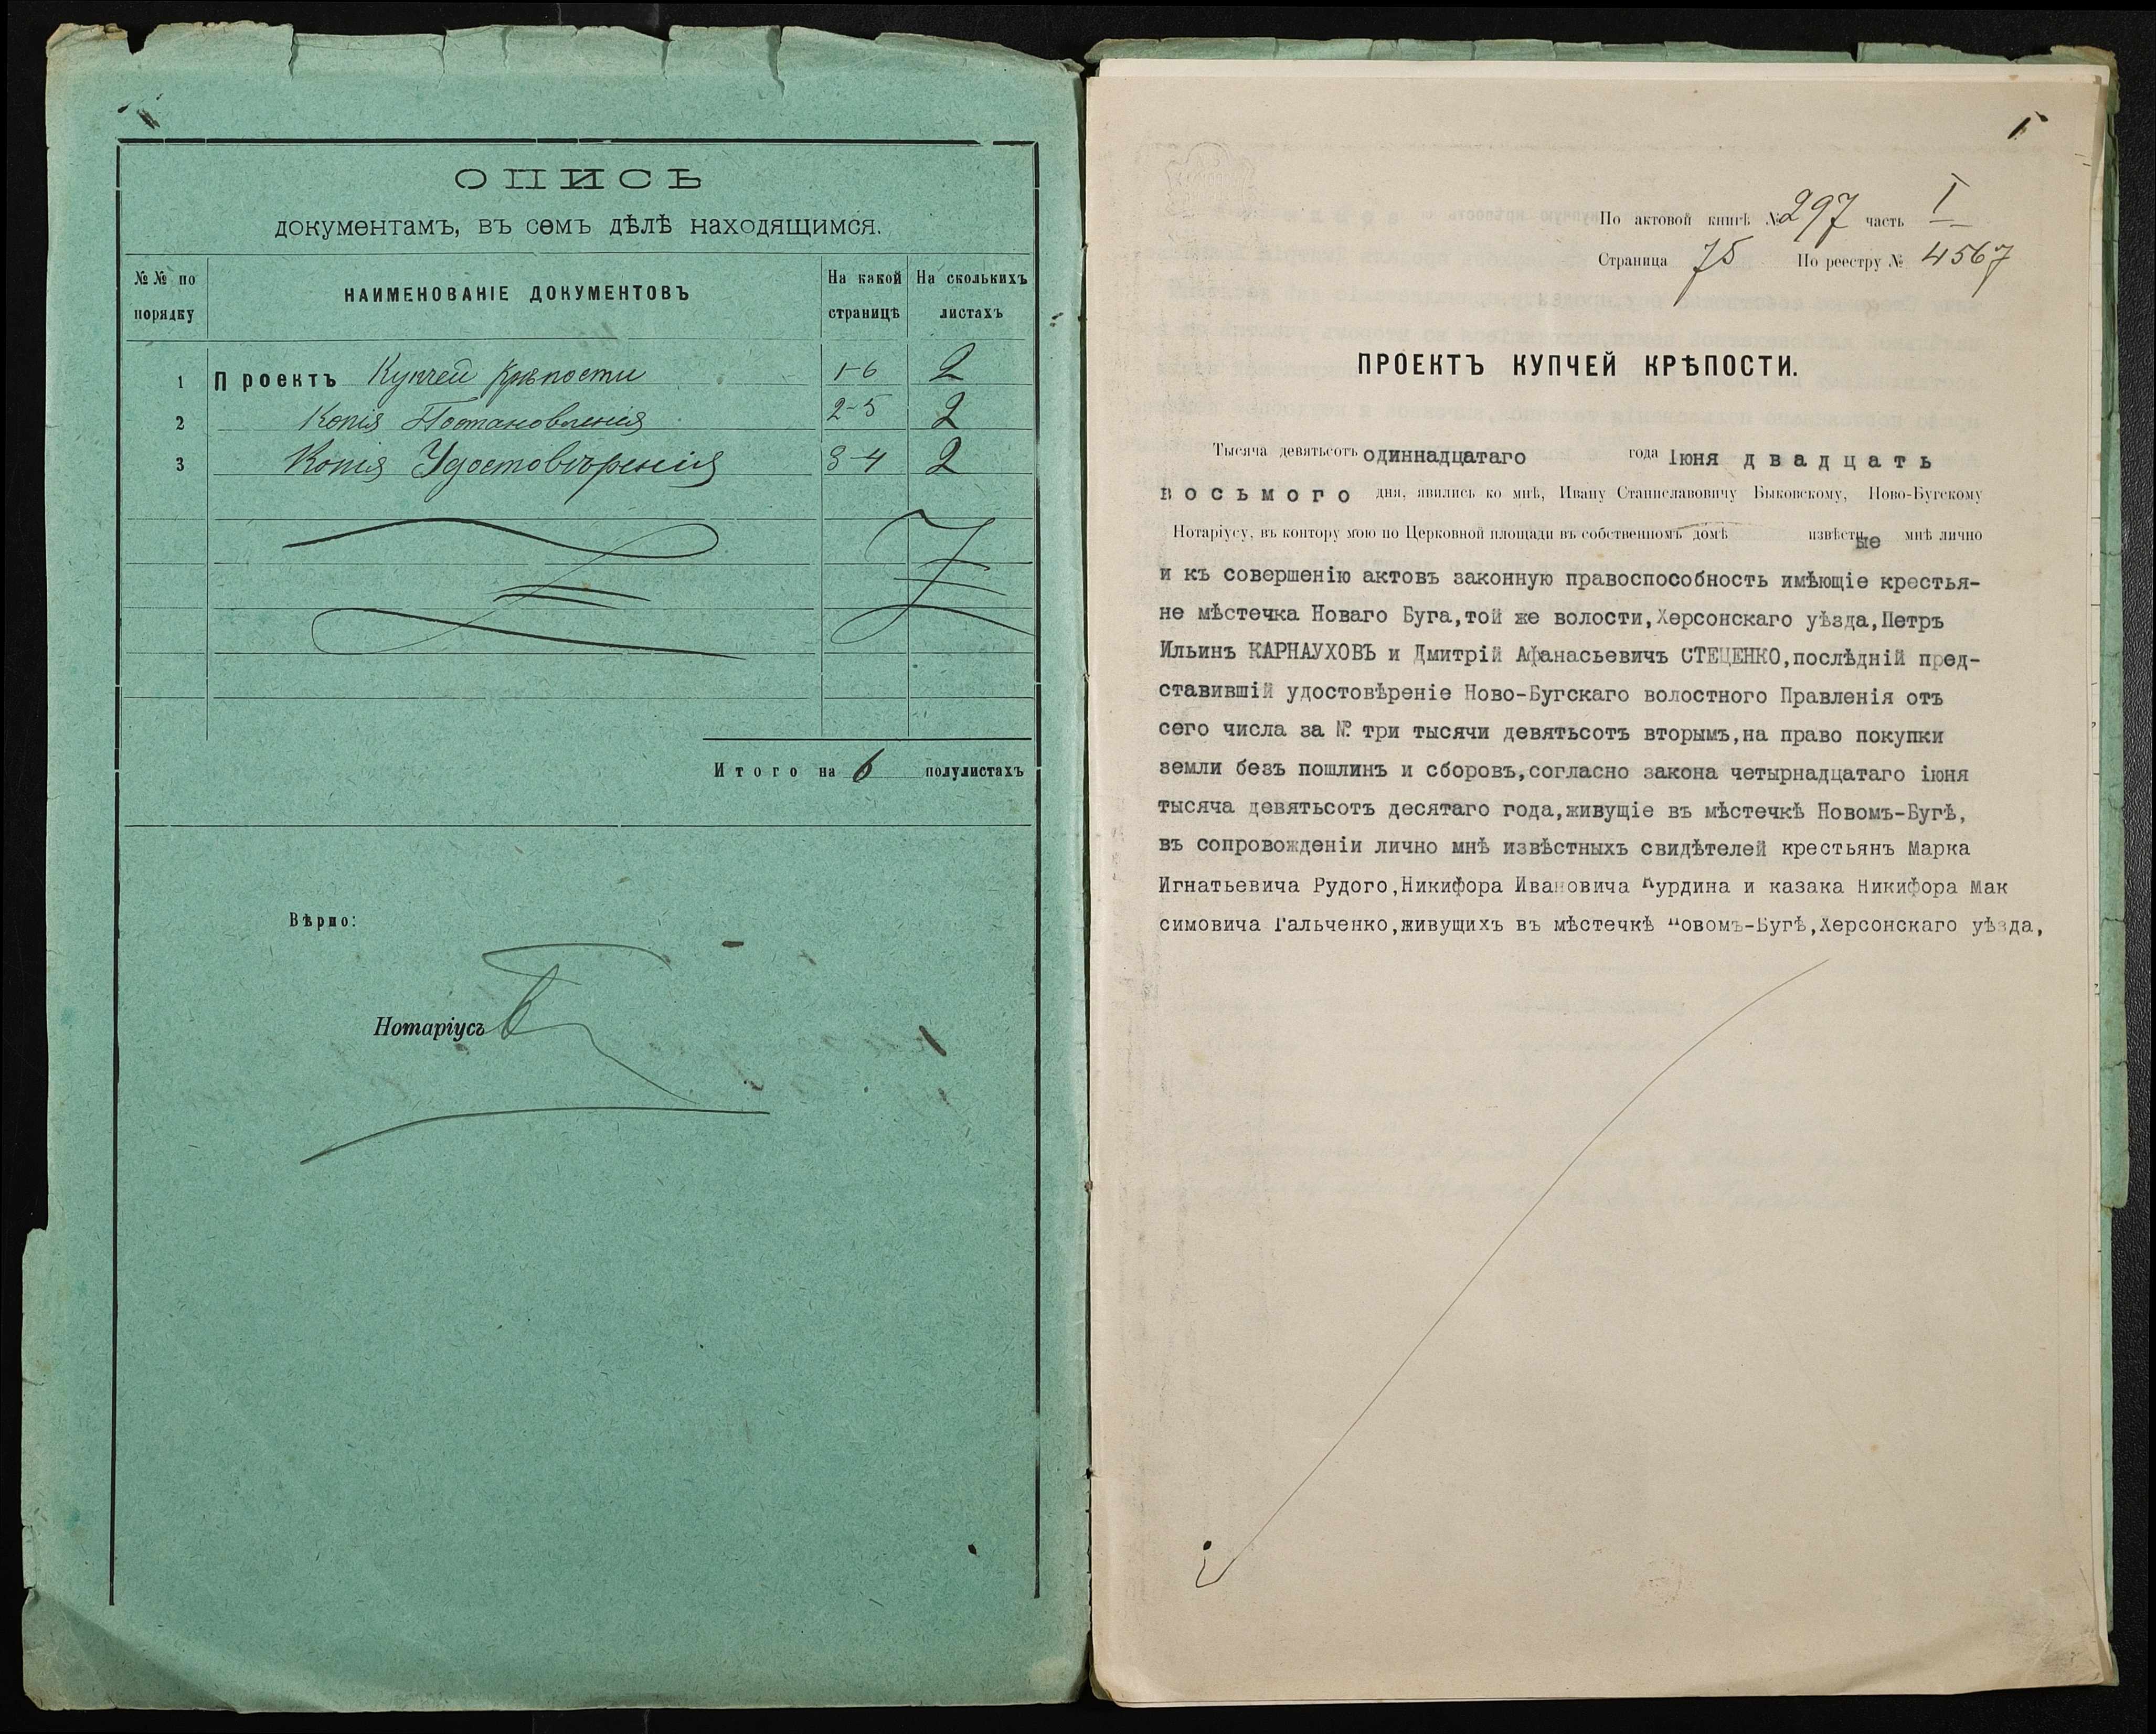 ОПИСЬ
документамъ, въ семъ дѣлѣ находящимся.
№№ по порядку
НАИМЕНОВАНІЕ ДОКУМЕНТОВЪ
На какой страницѣ
На сколькихъ листахъ
1 Проектъ Купчей Крѣпости 1-6 2
2 Копія Постановленія 2-5 2
3 Копія Удостовѣренія 3-4 2
Итого на 6 полулистахъ
Вѣрно:
Нотаріусъ
1
По актовой книгѣ № 297 часть I
Страница 75 По реестру № 4567
ПРОЕКТЪ КУПЧЕЙ КРѢПОСТИ.
Тысяча девятьсотъ одиннадцатаго года Іюня двадцать
восьмого дня, явились ко мнѣ, Ивану Станиславовичу Быковскому, Ново-Бугскому
Нотаріусу, въ контору мою по Церковной площади въ собственномъ домѣ извѣстные мнѣ лично
и къ совершенію актовъ законную правоспособность имѣющіе крестья-
не мѣстечка Новаго Буга,той же волости,Херсонскаго уѣзда,Петръ
Ильинъ КАРНАУХОВЪ и Дмитрій Афанасьевичъ СТЕЦЕНКО,послѣдній пред-
ставившій удостовѣреніе Ново-Бугскаго волостного Правленія отъ
сего числа за № три тысячи девятьсотъ вторымъ,на право покупки
земли безъ пошлинъ и сборовъ,согласно закона четырнадцатаго іюня
тысяча девятьсотъ десятаго года,живущіе въ мѣстечкѣ Новомъ-Бугѣ,
въ сопровожденіи лично мнѣ извѣстныхъ свидѣтелей крестьянъ Марка
Игнатьевича Рудого,Никифора Ивановича Курдина и казака Никифора Мак
симовича Гальченко,живущихъ въ мѣстечкѣ Новомъ-Бугѣ,Херсонскаго уѣзда,